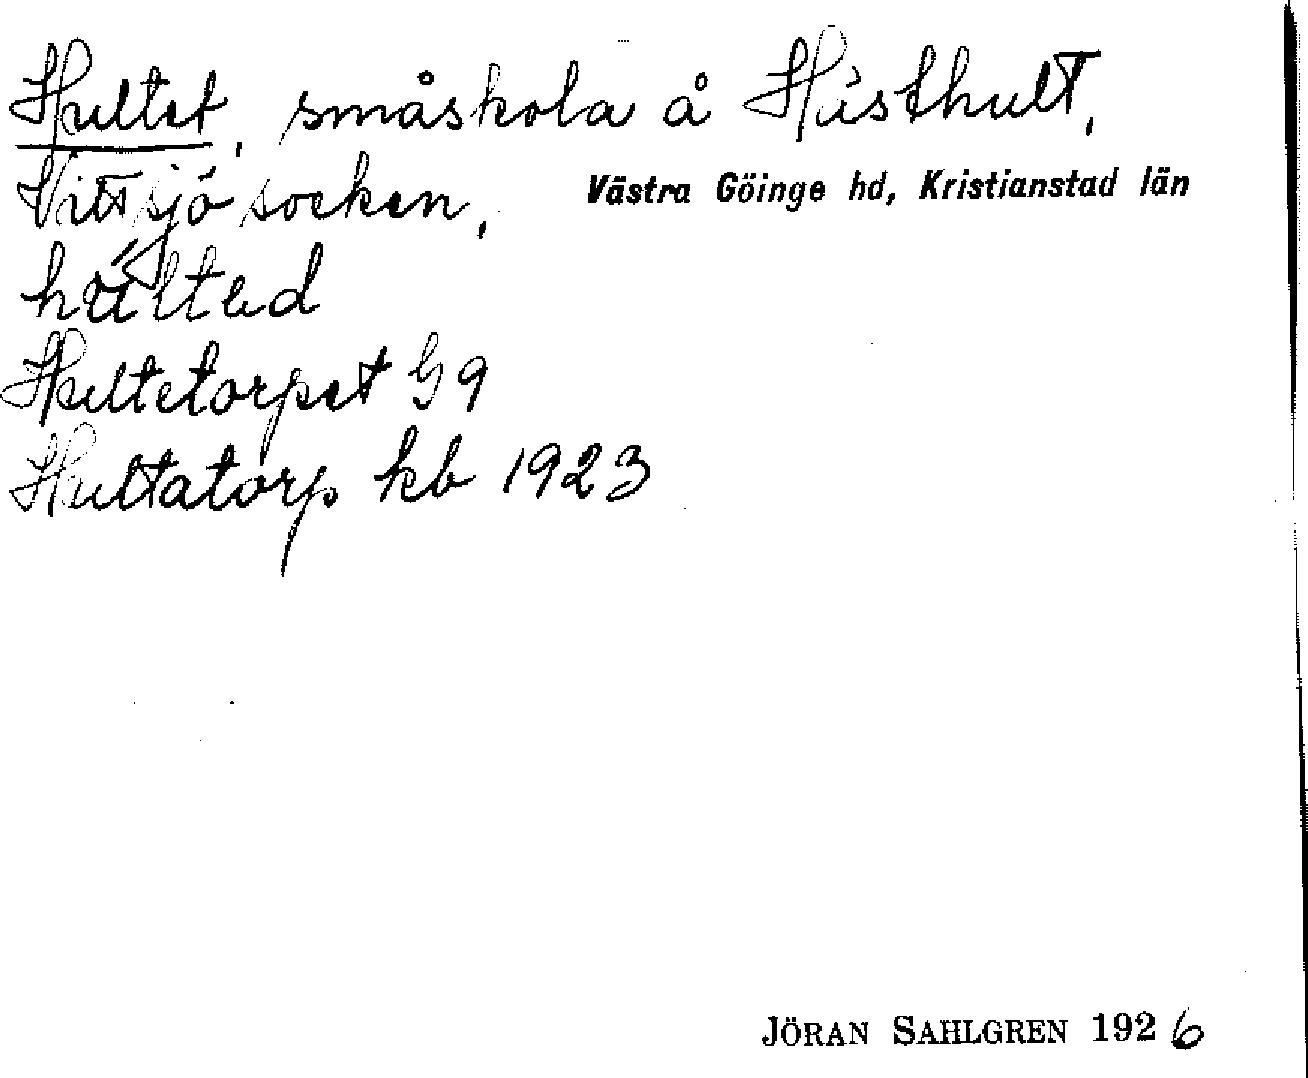 Hultet, småskola å Hästhult,
Vittsjö socken, Västra Göinge hd, Kristianstad län
húltəd
Hultetorpet G 9
Hultatorp kb 1923
JÖRAN SAHLGREN 1926